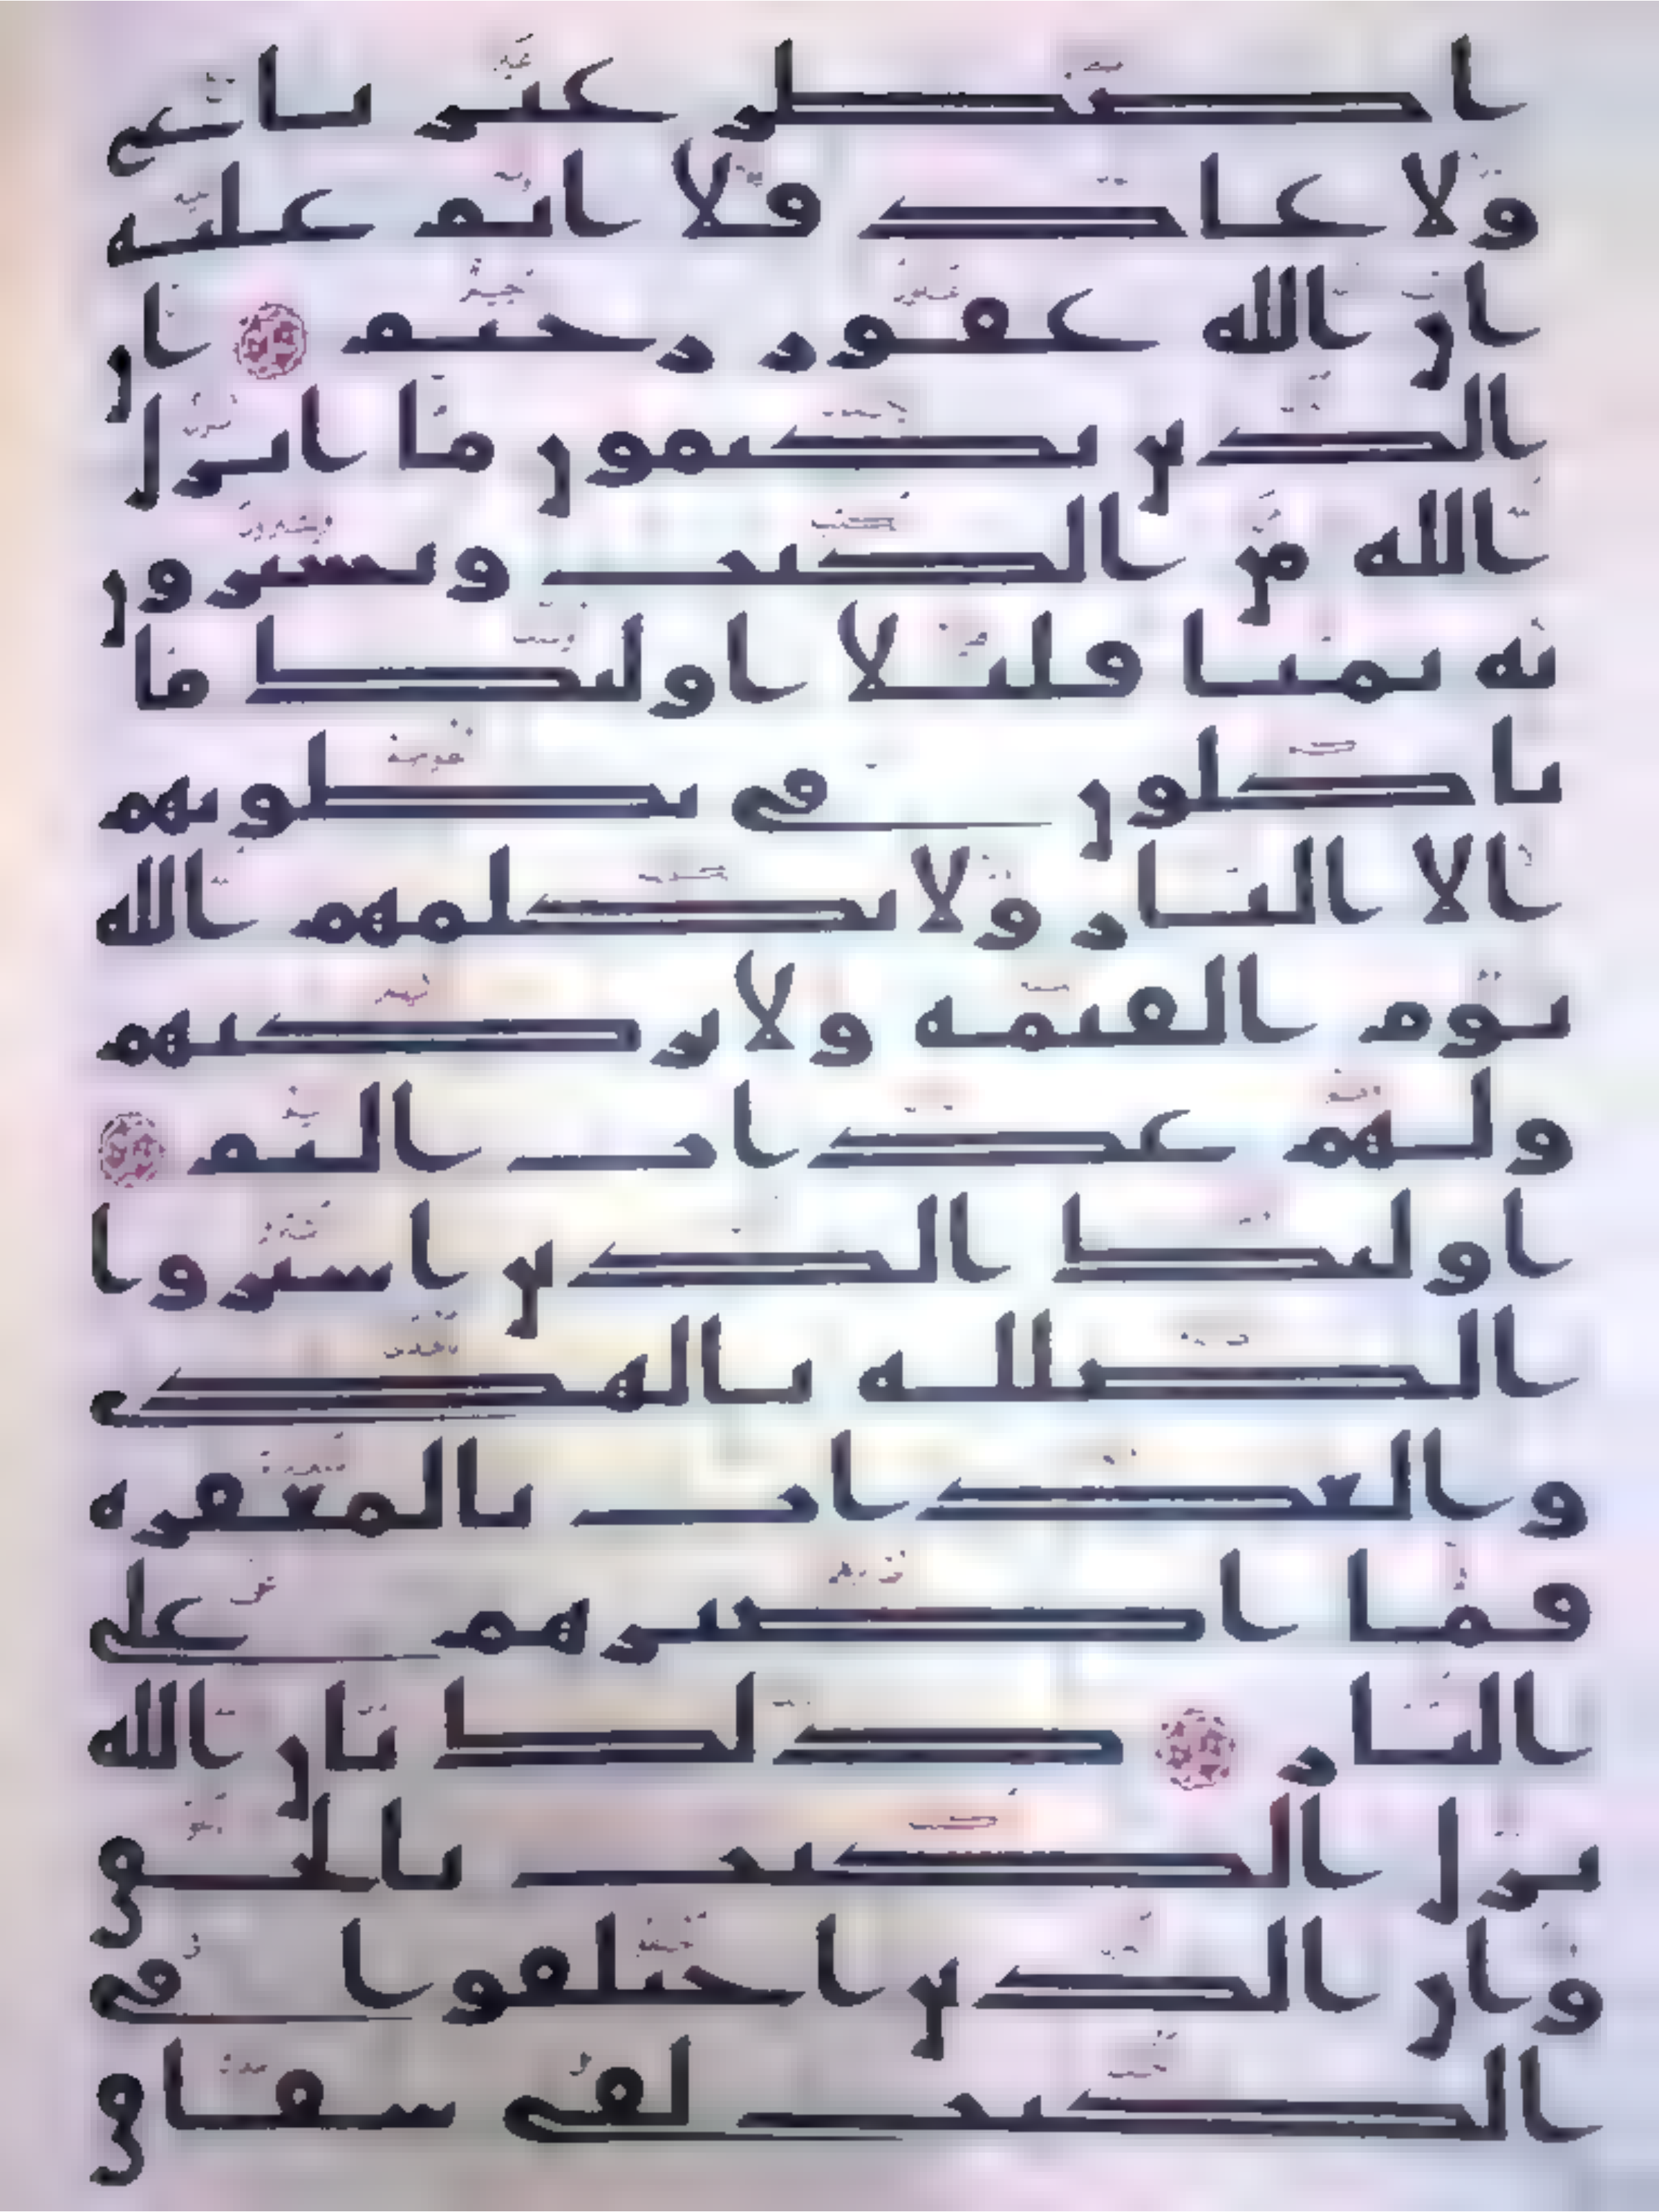 اضطر غير باغ
ولا عاد فلا اثم عليه
ان الله غفور رحيم ان
الذين يكتمون ما انزل
الله من الكتب ويشترون
به ثمنا قليلا اولئك ما
ياكلون في بطونهم
الا النار ولا يكلمهم الله
يوم القيمة ولا يزكيهم
ولهم عذاب اليم
اولئك الذين اشتروا
الضللة بالهدى
والعذاب بالمغفرة
فما اصبرهم على
النار ذلك بان الله
نزل الكتب بالحق
وان الذين اختلفوا في
الكتب لفي شقاق